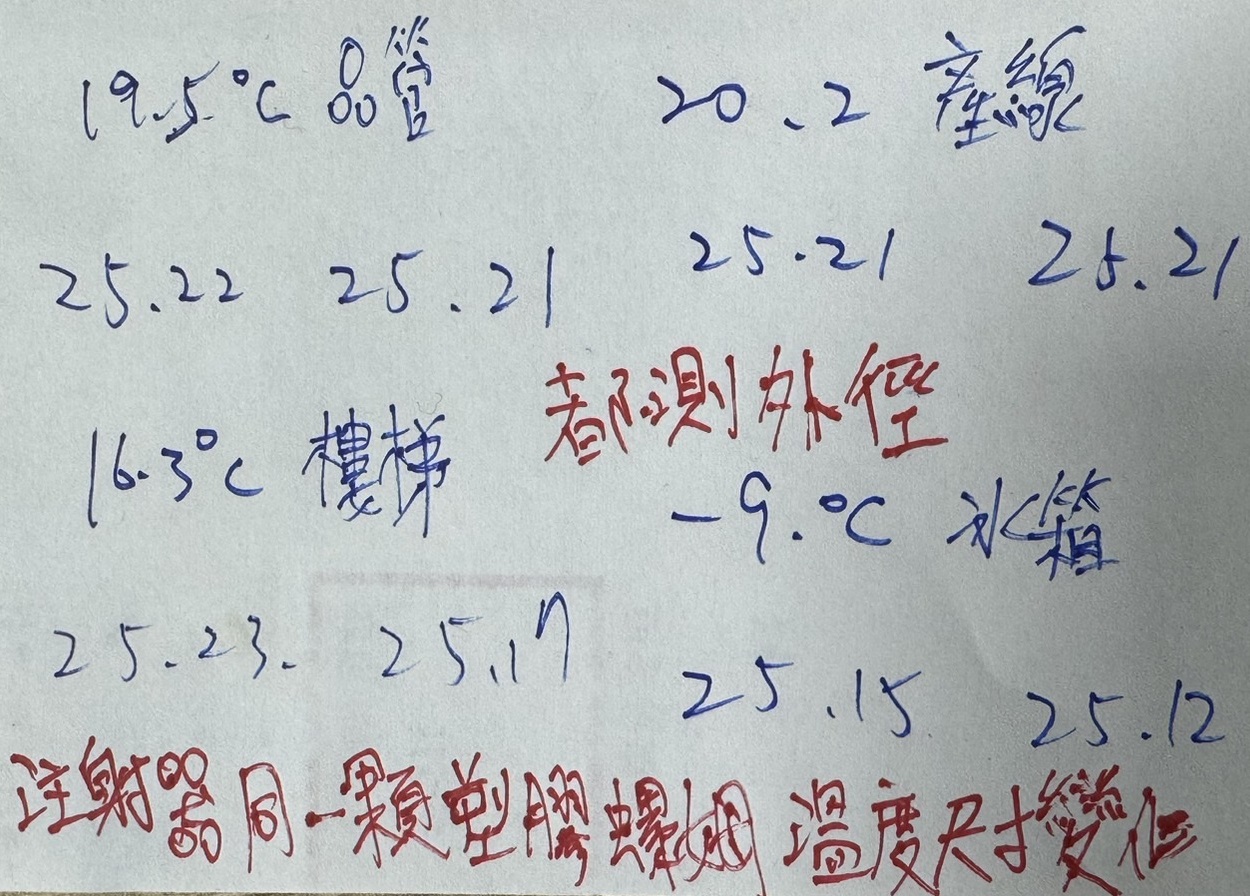 19.5°C 品管
20.2 產線
25.22 25.21
25.21 25.21
都測外徑
16.3°C 樓梯
-9.°C 冰箱
25.23. 25.17
25.15 25.12
注射器同一顆塑膠螺姆 溫度尺寸變化